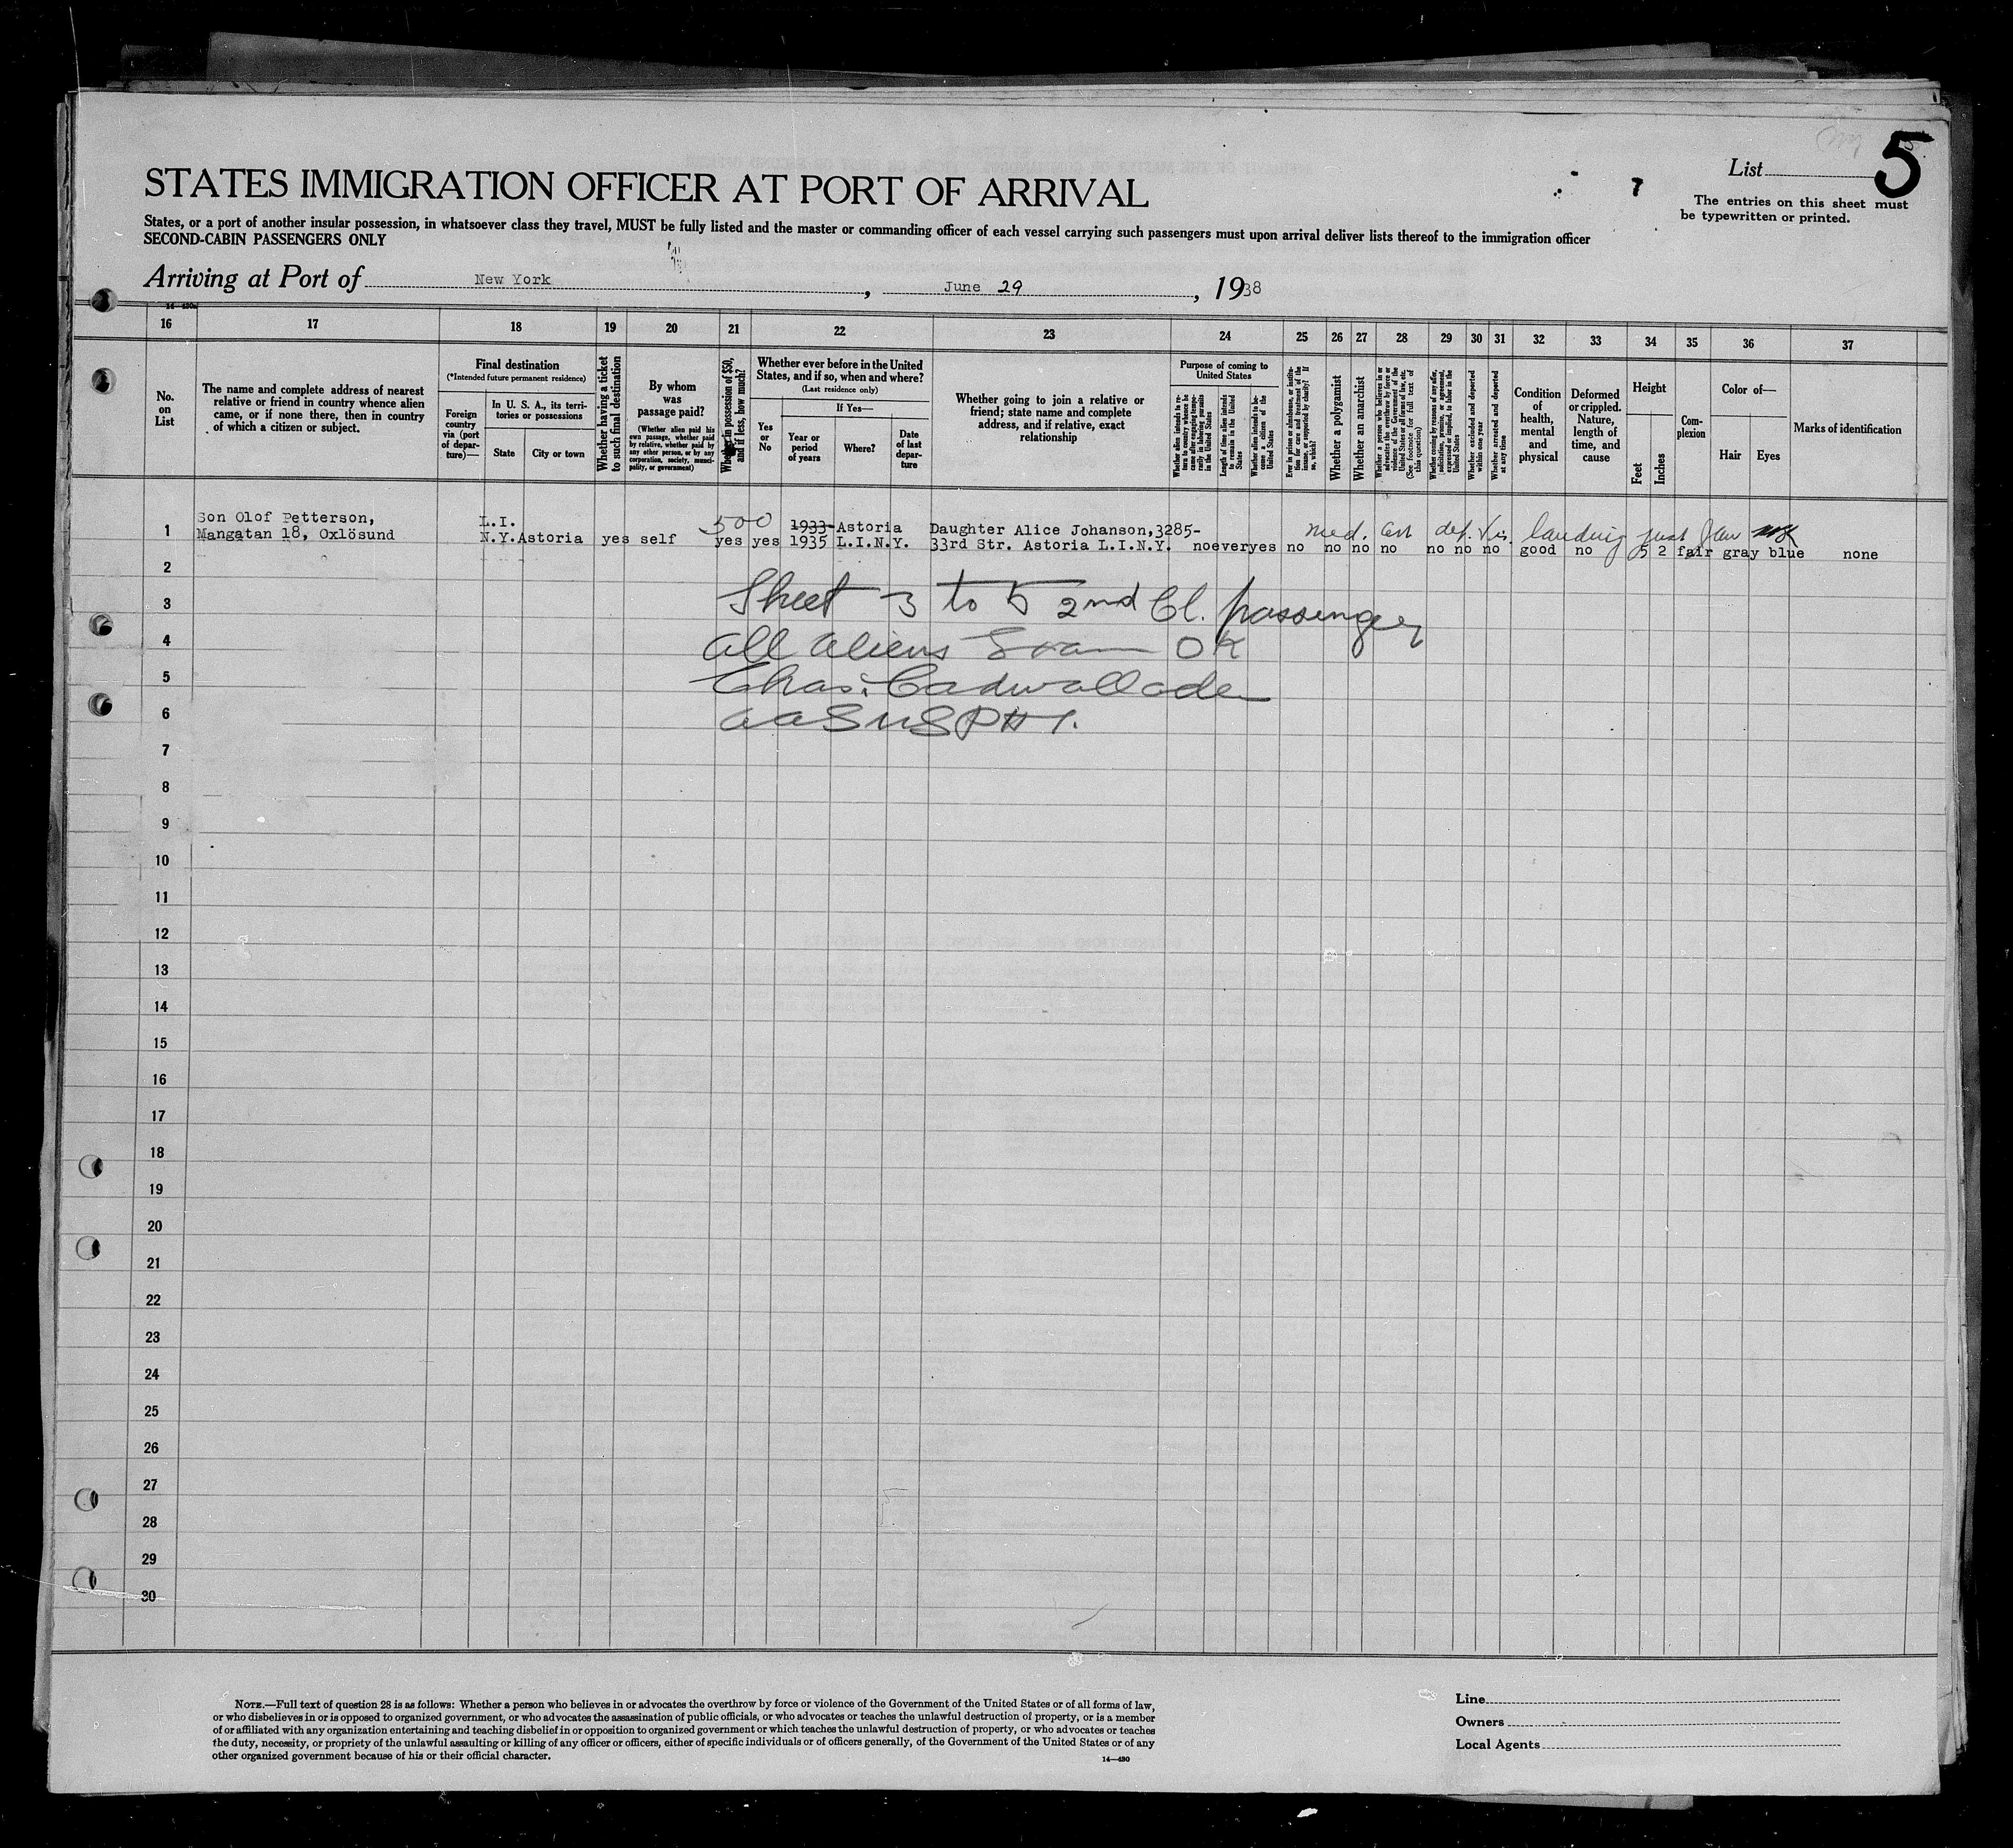 List 5
STATES IMMIGRATION OFFICER AT PORT OF ARRIVAL
The entries on this sheet must
be typewritten or printed.
States, or a port of another insular possession, in whatsoever class they travel, MUST be fully listed and the master or commanding officer of each vessel carrying such passengers must upon arrival deliver lists thereof to the immigration officer
SECOND-CABIN PASSENGERS ONLY
Arriving at Port of New York, June 29, 1938
16 17 18 19 20 21 22 23 24 25 26 27 28 29 30 31 32 33 34 35 36 37
No.
on
List
The name and complete address of nearest
relative or friend in country whence alien
came, or if none there, then in country
of which a citizen or subject.
Final destination
(*Intended future permanent residence)
Foreign
country
via (port
of depar-
ture)—
In U. S. A., its terri-
tories or possessions
State
City or town
Whether having a ticket
to such final destination
By whom
was
passage paid?
(Whether alien paid his
own passage, whether paid
by relative, whether paid by
any other person, or by any
corporation, society, munici-
pality, or government)
Whether in possession of $50,
and if less, how much?
Whether ever before in the United
States, and if so, when and where?
(Last residence only)
Yes
or
No
If Yes—
Year or
period
of years
Where?
Date
of last
depar-
ture
Whether going to join a relative or
friend; state name and complete
address, and if relative, exact
relationship
Purpose of coming to
United States
Whether alien intends to re-
turn to country whence he
came after engaging tempo-
rarily in laboring pursuits
in the United States
Length of time alien intends
to remain in the United
States
Whether alien intends to be-
come a citizen of the
United States
Ever in prison or almshouse, or institu-
tion for care and treatment of the
insane, or supported by charity? If
so, which?
Whether a polygamist
Whether an anarchist
Whether a person who believes in or
advocates the overthrow by force or
violence of the Government of the
United States or all forms of law, etc.
(See footnote for full text of
this question)
Whether coming by reasons of any offer,
solicitation, promise, or agreement,
expressed or implied, to labor in the
United States
Whether excluded and deported
within one year
Whether arrested and deported
at any time
Condition
of
health,
mental
and
physical
Deformed
or crippled.
Nature,
length of
time, and
cause
Height
Feet
Inches
Com-
plexion
Color of—
Hair
Eyes
Marks of identification
Son Olof Petterson, L.I. 500 1933- Astoria Daughter Alice Johanson,3285- med. cert def. vis. landing
1 Mangatan 18, Oxlösund N.Y. Astoria yes self yes yes 1935 L.I.N.Y. 33rd Str. Astoria L.I.N.Y. no ever yes no no no no no no no good no 5 2 fair gray blue none
2
3 Sheet 3 to 5 2nd Cl. passenger
4 all aliens Exam OK
5 Chas. Cadwallader
6
7
8
9
10
11
12
13
14
15
16
17
18
19
20
21
22
23
24
25
26
27
28
29
30
NOTE.—Full text of question 28 is as follows: Whether a person who believes in or advocates the overthrow by force or violence of the Government of the United States or of all forms of law,
or who disbelieves in or is opposed to organized government, or who advocates the assassination of public officials, or who advocates or teaches the unlawful destruction of property, or is a member
of or affiliated with any organization entertaining and teaching disbelief in or opposition to organized government or which teaches the unlawful destruction of property, or who advocates or teaches
the duty, necessity, or propriety of the unlawful assaulting or killing of any officer or officers, either of specific individuals or of officers generally, of the Government of the United States or of any
other organized government because of his or their official character.
14—430
Line
Owners
Local Agents